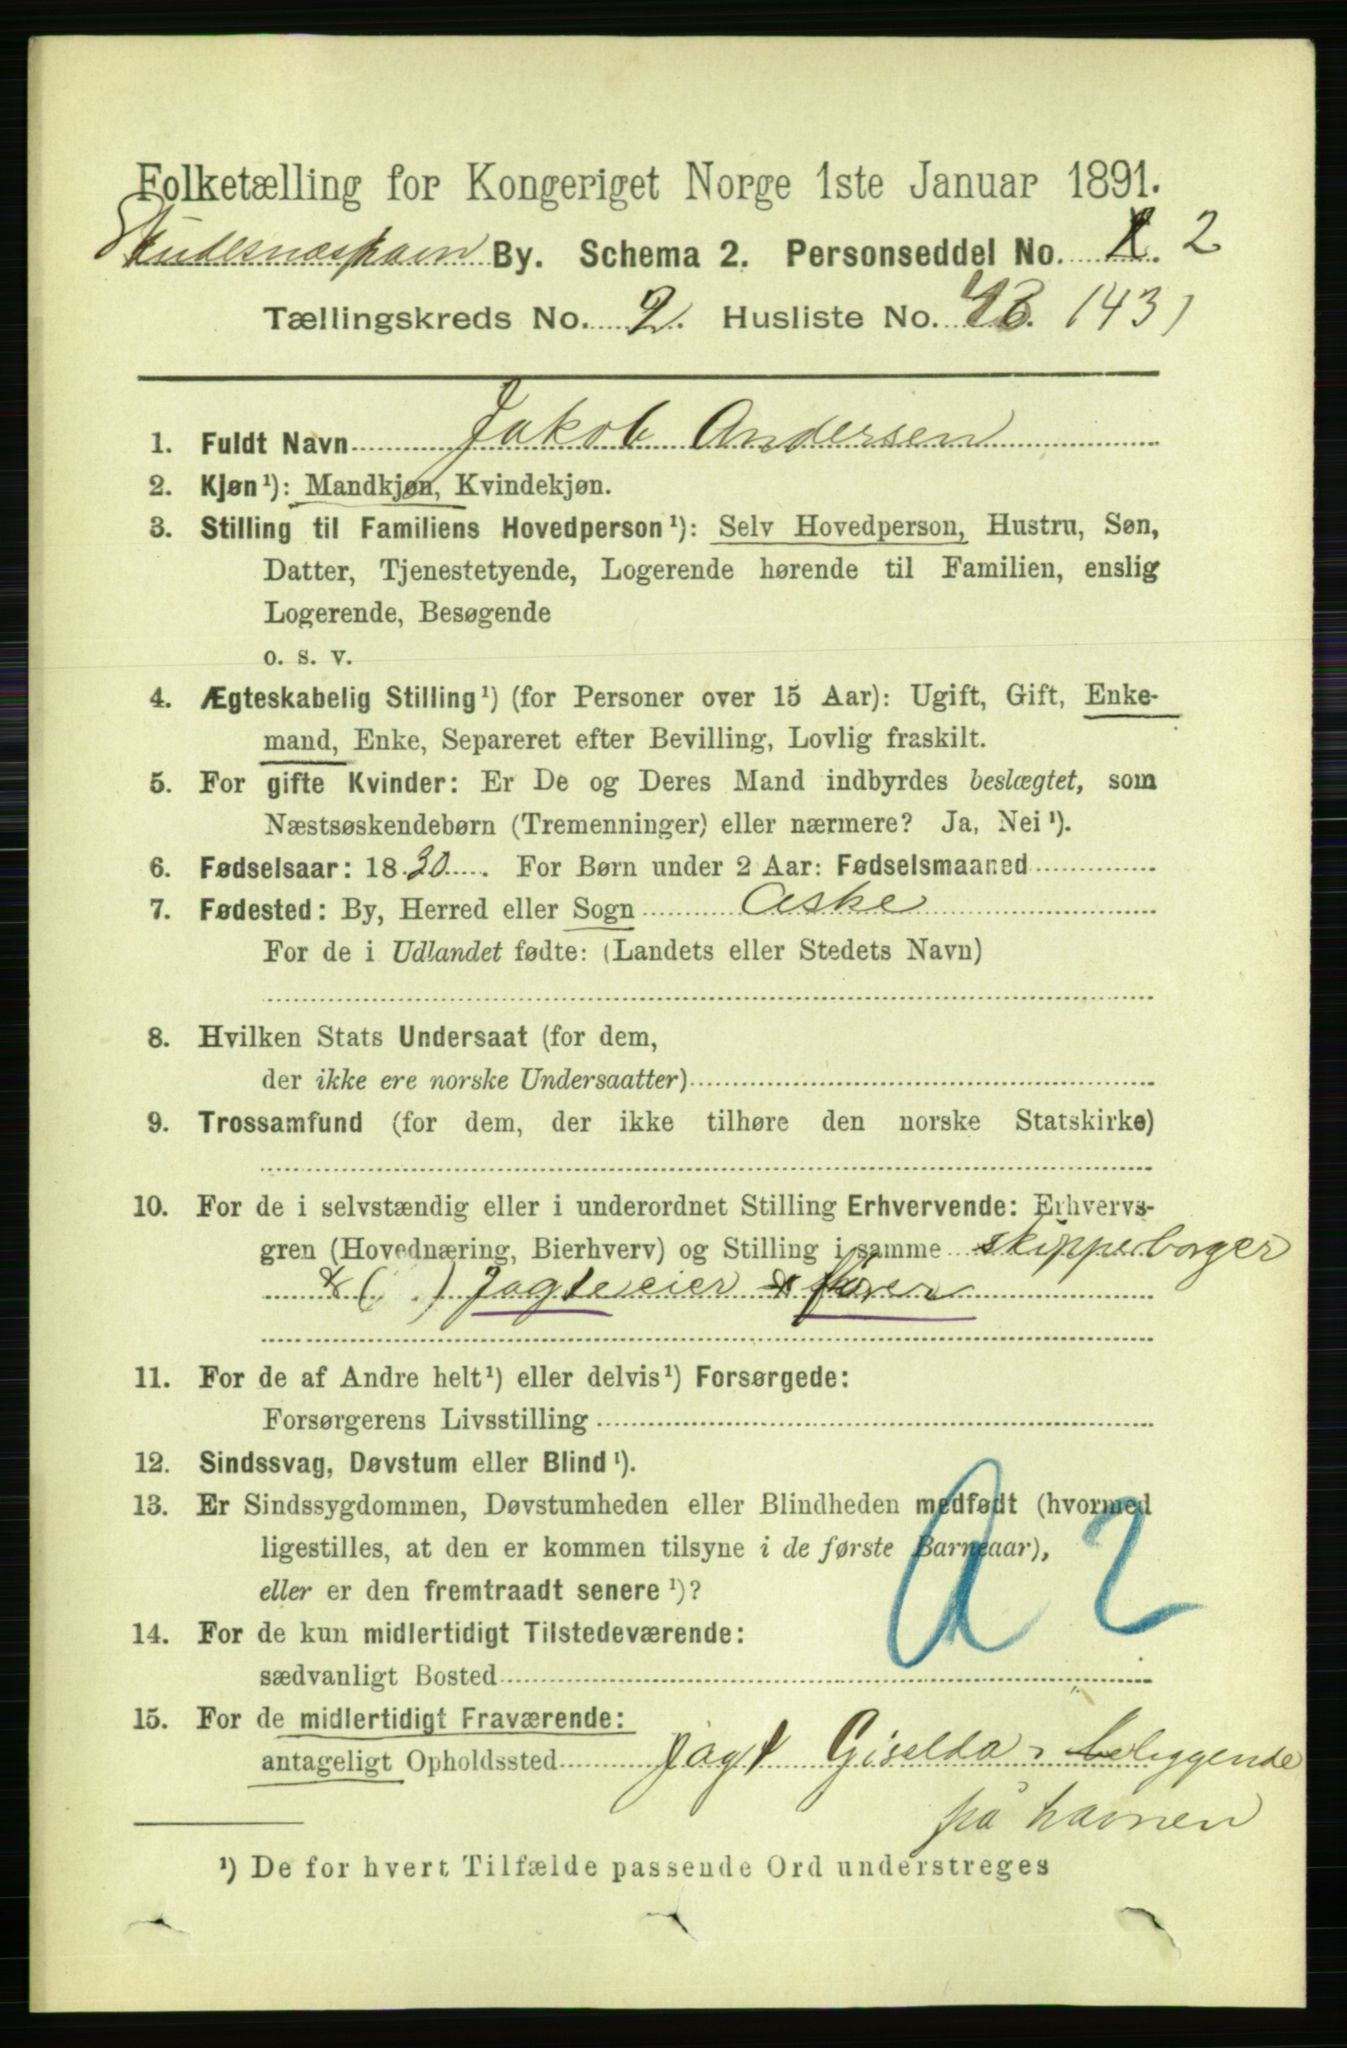 Folketælling for Kongeriget Norge 1ste Januar 1891.
Skudesneshavn By. Schema 2. Personseddel No. 2
Tællingskreds No. 2. Husliste No. 143
1. Fuldt Navn Jakob Andersen
2. Kjøn¹): Mandkjøn, Kvindekjøn.
3. Stilling til Familiens Hovedperson¹): Selv Hovedperson, Hustru, Søn,
Datter, Tjenestetyende, Logerende hørende til Familien, enslig
Logerende, Besøgende
o. s. v.
4. Ægteskabelig Stilling¹) (for Personer over 15 Aar): Ugift, Gift, Enke-
mand, Enke, Separeret efter Bevilling, Lovlig fraskilt.
5. For gifte Kvinder: Er De og Deres Mand indbyrdes beslægtet, som
Næstsøskendebørn (Tremenninger) eller nærmere? Ja, Nei¹).
6. Fødselsaar: 1830. For Børn under 2 Aar: Fødselsmaaned
7. Fødested: By, Herred eller Sogn Aske
For de i Udlandet fødte: (Landets eller Stedets Navn)
8. Hvilken Stats Undersaat (for dem,
der ikke ere norske Undersaatter)
9. Trossamfund (for dem, der ikke tilhøre den norske Statskirke)
10. For de i selvstændig eller i underordnet Stilling Erhvervende: Erhvervs-
gren (Hovednæring, Bierhverv) og Stilling i samme skipperborger
& ( ) Jagteeier & fører
11. For de af Andre helt¹) eller delvis¹) Forsørgede:
Forsørgerens Livsstilling
12. Sindssvag, Døvstum eller Blind¹).
13. Er Sindssygdommen, Døvstumheden eller Blindheden medfødt (hvormed
ligestilles, at den er kommen tilsyne i de første Barneaar),
eller er den fremtraadt senere¹)?
A 2
14. For de kun midlertidigt Tilstedeværende:
sædvanligt Bosted
15. For de midlertidigt Fraværende:
antageligt Opholdssted jagt Giselda, liggende
på havnen
¹) De for hvert Tilfælde passende Ord understreges